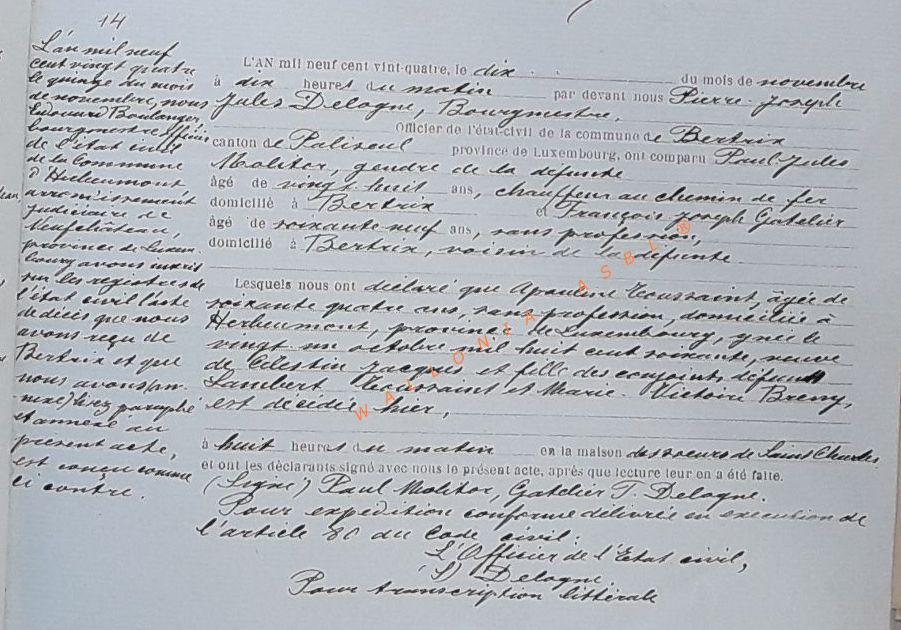 14
L'an mil neuf
cent vingt quatre
le quinze du mois
de novembre, nous
Edouard Boulanger,
bourgmestre officier
de l'état civil
de la Commune
d'Herbeumont
arrondissement
judiciaire de
Neufchâteau,
province de Luxem-
bourg avons inscrit
sur les registres de
l'état civil l'acte
de décès que nous
avons reçu de
Bertrix et que
nous avons
paraphé
et annexé au
présent acte,
est conçu comme
ci contre.
L'AN mil neuf cent vint-quatre, le dix du mois de novembre
à dix heures du matin par devant nous Pierre-Joseph
Jules Delogne, Bourgmestre,
Officier de l'état-civil de la commune de Bertrix
canton de Paliseul province de Luxembourg, ont comparu Paul-Jules
Molitor, gendre de la défunte
âgé de vingt-huit ans, chauffeur au chemin de fer
domicilié à Bertrix et François Joseph Gatelier
âgé de soixante neuf ans, sans profession,
domicilié à Bertrix, voisin de la défunte
Lesquels nous ont déclaré que Apauline Toussaint, âgée de
soixante quatre ans, sans profession, domiciliée à
Herbeumont, province de Luxembourg, y née le
vingt un octobre mil huit cent soixante, veuve
de Célestin Jacques et fille des conjoints défunts
Lambert Toussaint et Marie-Victoire Breny,
est décédée hier,
à huit heures du matin en la maison des soeurs de Saint Charles
et ont les déclarants signé avec nous le présent acte, après que lecture leur en a été faite.
(Signé) Paul Molitor, Gatelier F. Delogne.
Pour expédition conforme délivrée en exécution de
l'article 80 du Code civil.
L'Officier de l'Etat civil,
(S) Delogne
Pour transcription littérale
WALLONIA ASBL ®